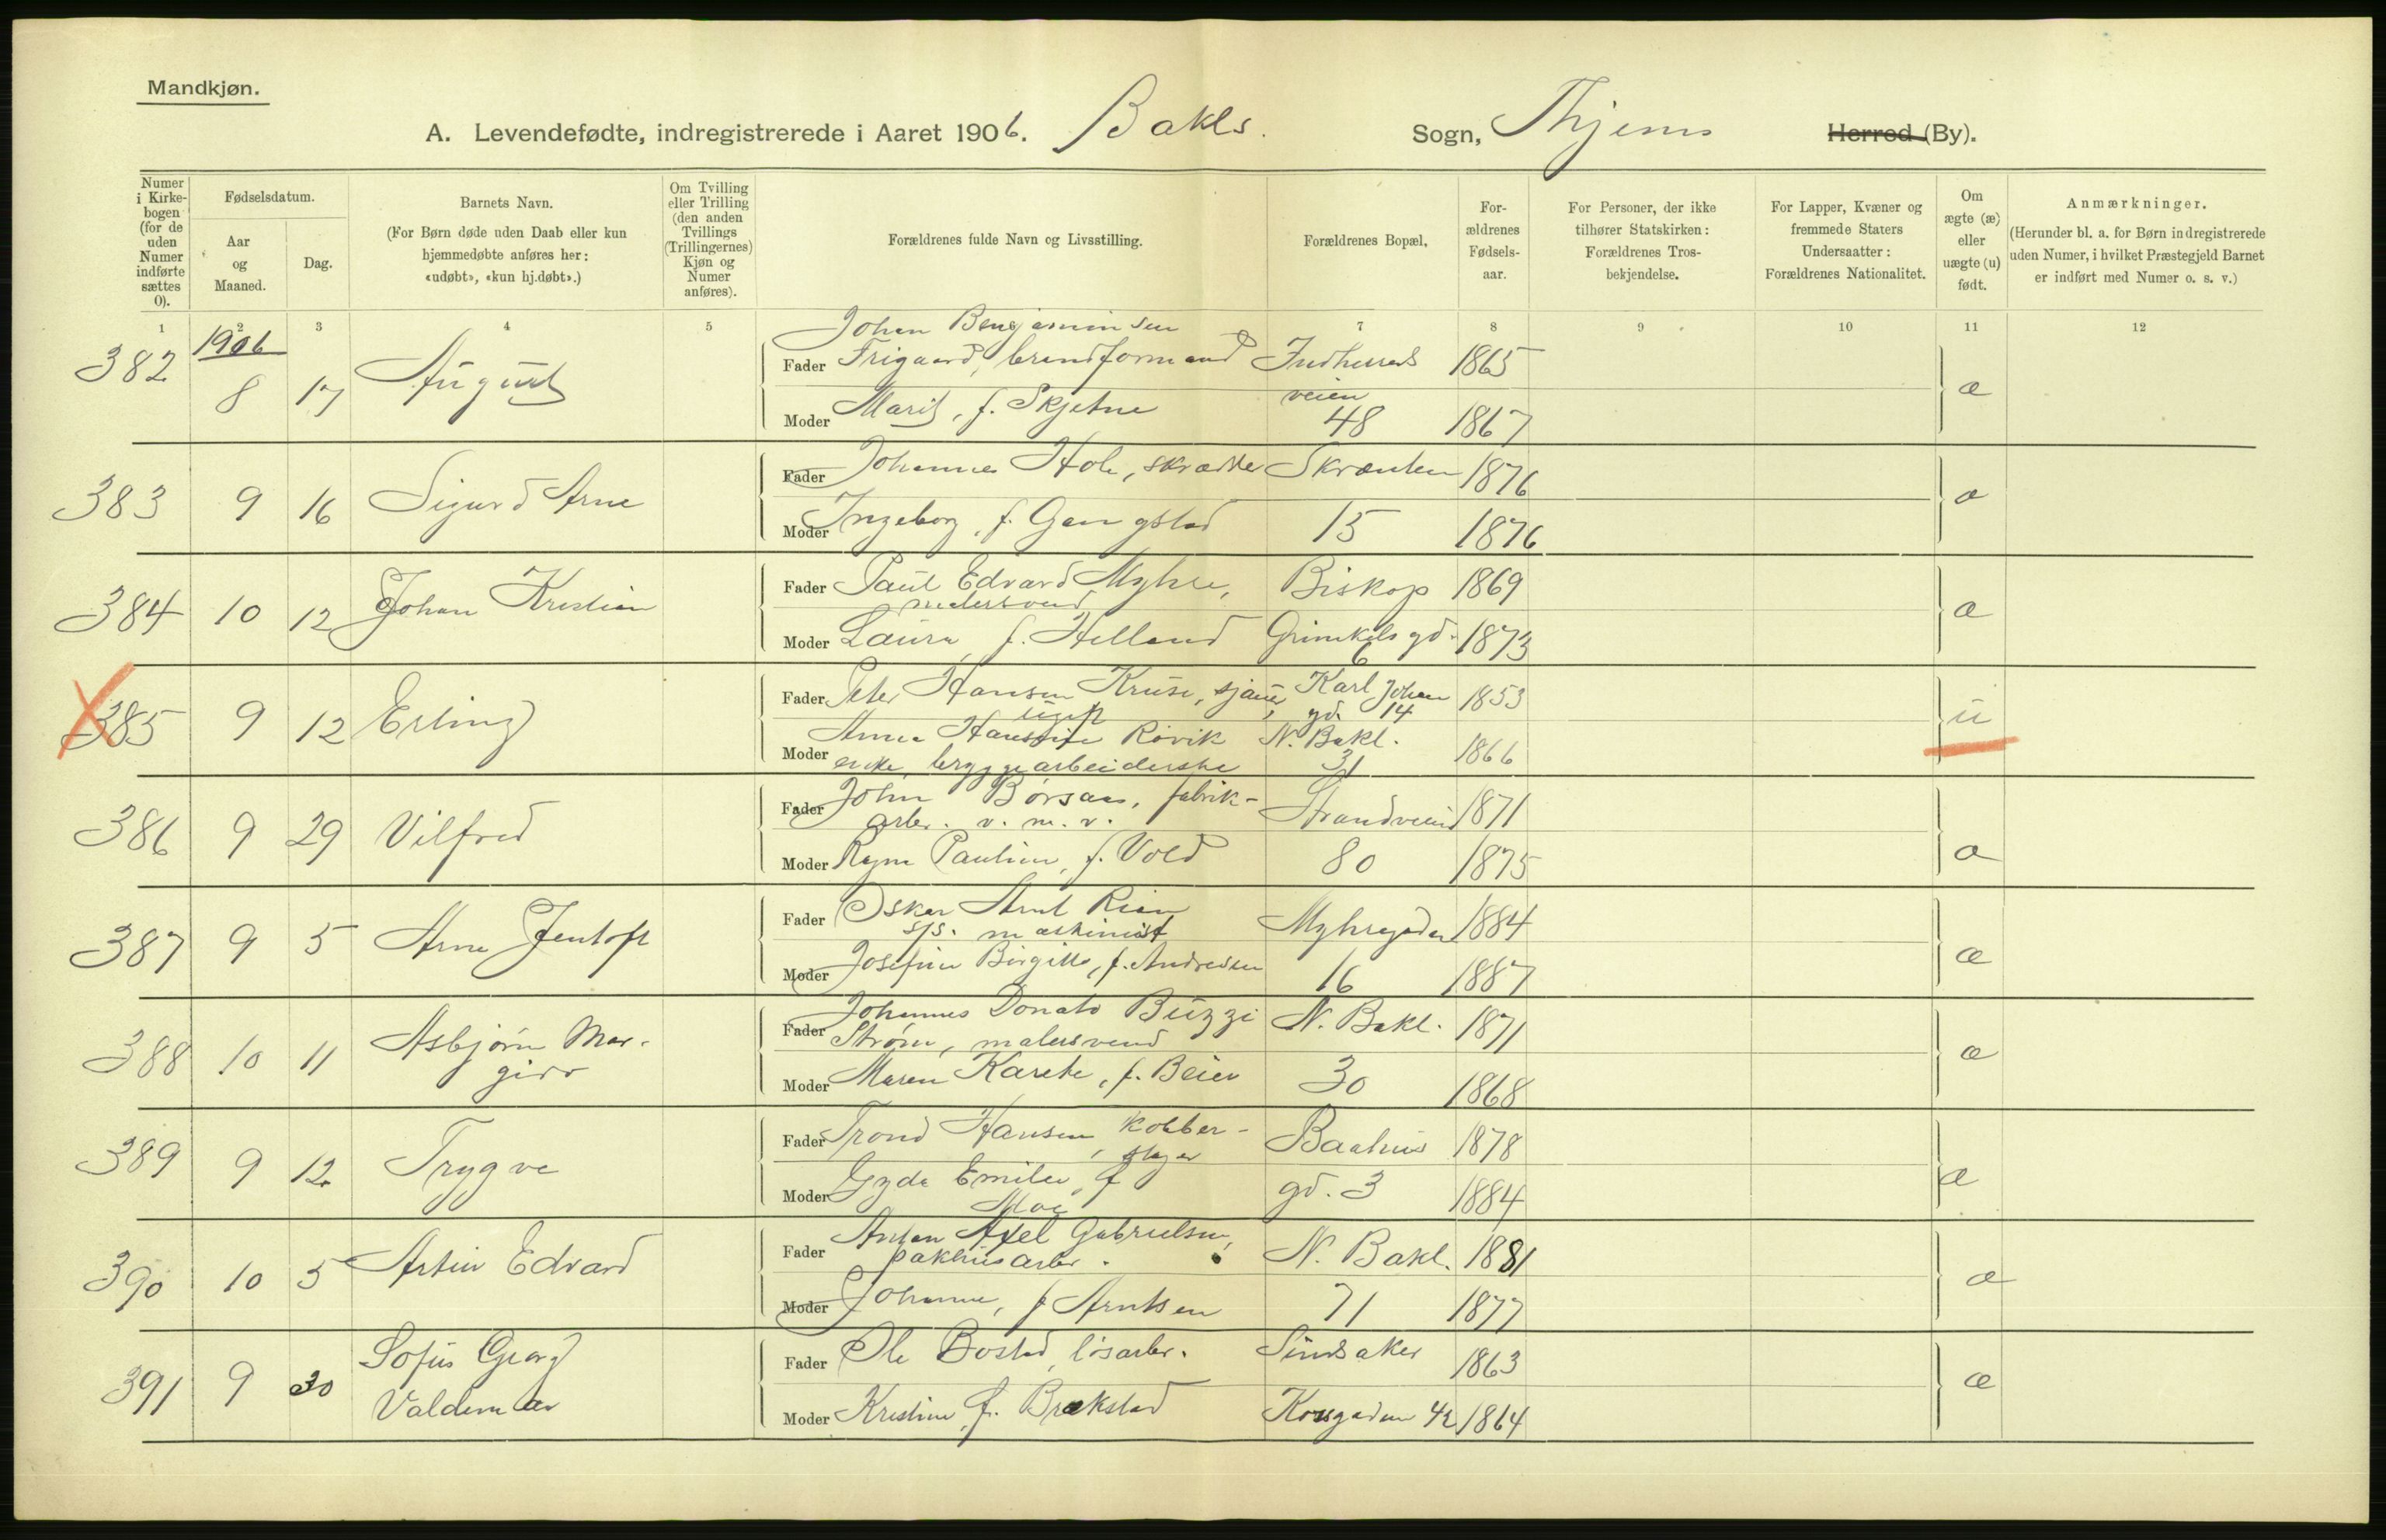 Mandkjøn.
A. Levendefødte, indregistrerede i Aaret 1906. Bakls. Sogn, Thjems Herred (By).
Numer i Kirkebogen (for de uden Numer indførte sættes 0).
Fødselsdatum.
Aar og Maaned.
Dag.
Barnets Navn.
(For Børn døde uden Daab eller kun hjemmedøbte anføres her: «udøbt», «kun hj.døbt».)
Om Tvilling eller Trilling (den anden Tvillings (Trillingernes) Kjøn og Numer anføres).
Forældrenes fulde Navn og Livsstilling.
Forældrenes Bopæl,
Forældrenes Fødselsaar.
For Personer, der ikke tilhører Statskirken: Forældrenes Trosbekjendelse.
For Lapper, Kvæner og fremmede Staters Undersaatter: Forældrenes Nationalitet.
Om ægte (æ) eller uægte (u) født.
Anmærkninger.
(Herunder bl. a. for Børn indregistrerede uden Numer, i hvilket Præstegjeld Barnet er indført med Numer o. s. v.)
1 2 3 4 5 7 8 9 10 11 12
1906
382 8 17 August
Johan Bengjaminsen
Fader Trigaard, brandformand Indherreds 1865 æ
veien
Moder Marit, f. Skjetne 48 1867
383 9 16 Sigurd Arne
Fader Johannes Hole, skrædder Skrænten 1876 æ
Moder Ingeborg, f. Gangstad 15 1876
384 10 12 Johan Kristian
Fader Paul Edvard Myhre, Biskop 1869 æ
malersvend
Moder Laura, f. Helland Grimkels gd. 1873
6
385 9 12 Erling
Fader Peter Hansen Kruse, sjauer, Karl Johan 1853 u
ugift gd. 14
Anna Hansine Rövik N. Bakl.
Moder enke, bryggearbeiderske 31 1866
386 9 29 Vilfred
Fader John Börsaas, fabrik- Strandveien 1871 æ
arbr. v. m. v.
Moder Ragna Pauline, f. Vold 80 1875
387 9 5 Arne Jentoft
Fader Oskar Arnt Rian Myhregaden 1884 æ
sjs. maskinist
Moder Josefine Birgitte, f. Andresen 16 1887
388 10 11 Asbjörn Mar-
gido
Johannes Donato Buzzi N. Bakl. 1871 æ
Fader Ström, malersvend
Moder Maren Karete, f. Beier 30 1868
389 9 12 Trygve
Fader Trond Hansen, kobber- Baahus 1878 æ
slager
Moder Gyda Emilie, f. gd. 3 1884
Moe
390 10 5 Artur Edvard
Fader Anton Axel Gabrielsen, N. Bakl. 1881 æ
pakhusarbr.
Moder Johanne, f. Arntsen 71 1877
391 9 30 Sofus Georg
Valdemar
Fader Ole Bostad, lösarbr. Sindsaker 1863 æ
Moder Kristine, f. Brækstad Korsgaden 42 1864